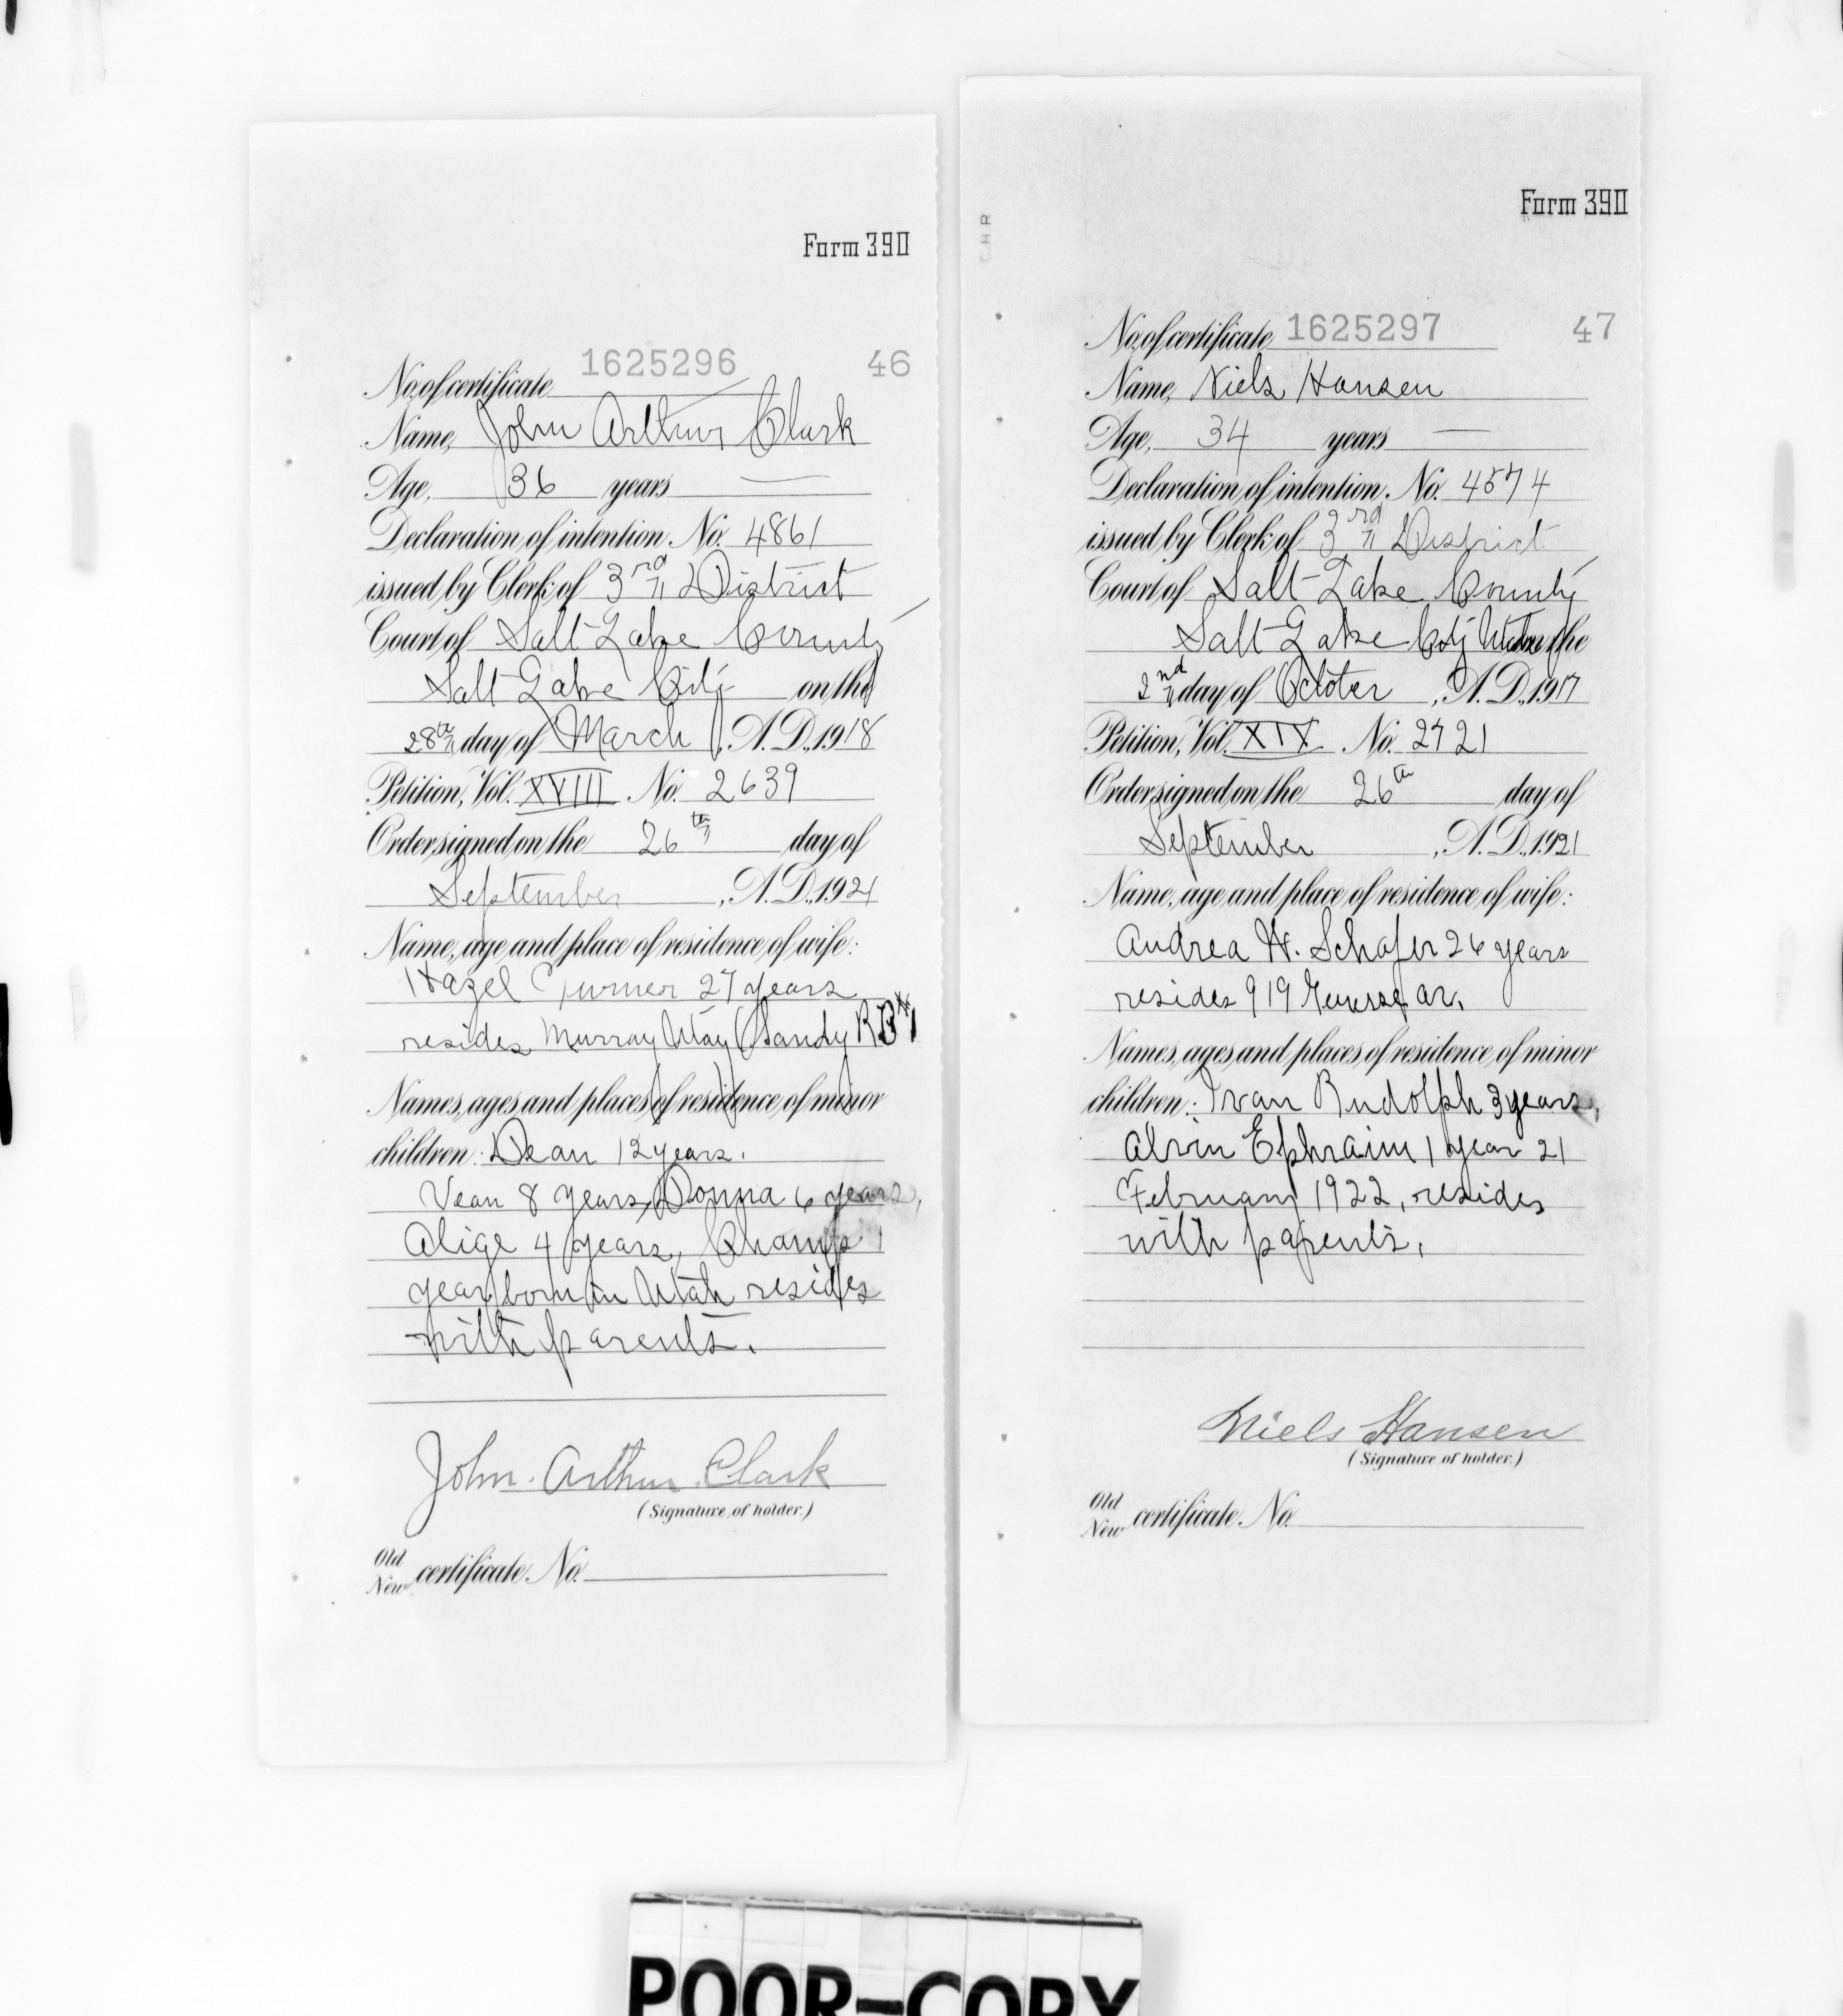 Form 390
No. of certificate 1625296 46
Name, John Arthur Clark
Age, 36 years —
Declaration of intention, No. 4861
issued by Clerk of 3rd District
Court of Salt Lake County
Salt Lake City on the
28th day of March, A.D., 1918
Petition, Vol. XVIII No. 2639
Order signed on the 26th day of
September, A.D., 1921
Name, age and place of residence of wife:
Hazel Turner 27 years
resides Murray (Sandy
Names, ages and places of residence of minor
children: Dean 12 years.
Vean 8 years, Donna 6 years,
4 years, Champ 1
year born in Utah resides
with parents.
John Arthur Clark
(Signature of holder.)
Old
New certificate No.
CHR
Form 390
No. of certificate 1625297 47
Name, Niels Hansen
Age, 34 years —
Declaration of intention, No. 4574
issued by Clerk of 3rd District
Court of Salt Lake County
Salt Lake City Utah on the
2nd day of Octoter, A.D., 1917
Petition, Vol. XIX No. 2721
Order signed on the 26th day of
September, A.D., 1921
Name, age and place of residence of wife:
Andrea W. Schafer 26 years
resides 919
Names, ages and places of residence of minor
children: Ivan Rudolph 3 years,
Alvin Ephraim 1 year 21
February 1922, resides
with parents.
Niels Hansen
(Signature of holder.)
Old
New certificate No.
POOR-COPY